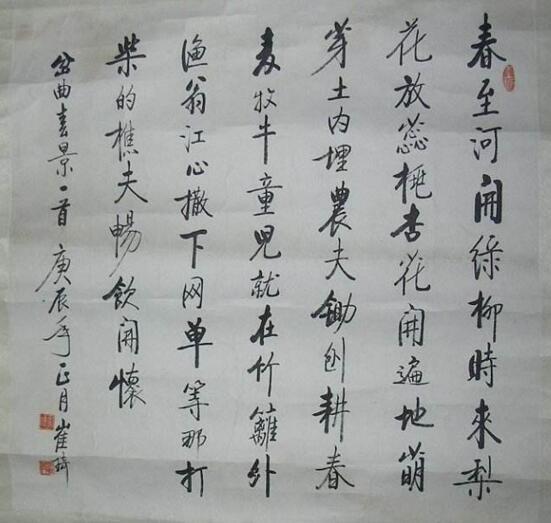 春至河開綠柳時來梨
花放蕊桃杏花開遍地萌
芽土內埋農夫鋤刨耕春
麦牧牛童兒就在竹籬外
渔翁江心撒下网单等那打
柴的樵夫暢飲開懷
岔曲春景一首 庚辰年正月崔琦